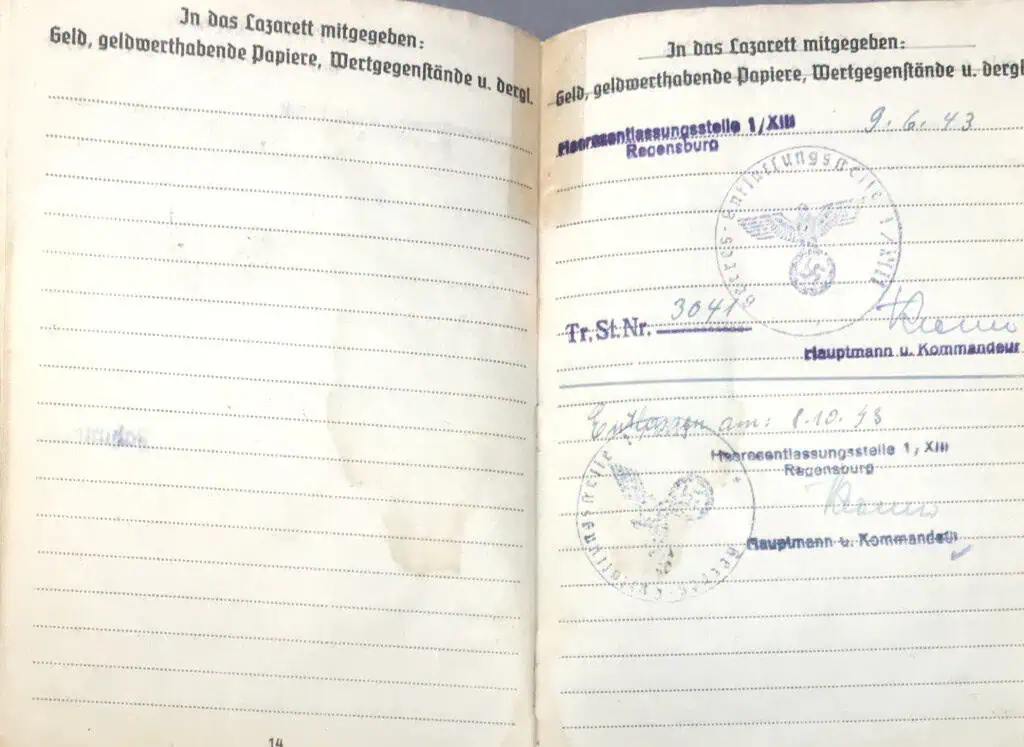 In das Lazarett mitgegeben:
Geld, geldwerthabende Papiere, Wertgegenstände u. dergl.
14
In das Lazarett mitgegeben:
Geld, geldwerthabende Papiere, Wertgegenstände u. dergl
Heeresentlassungsstelle 1/XIII
Regensburg
9. 6. 43
Heeres-Entlassungsstelle 1/XIII
Tr. St. Nr. 3041
Hauptmann u. Kommandeur
Entlassen am: 8.10.43
Heeresentlassungsstelle 1, XIII
Regensburg
Hauptmann u. Kommandeur